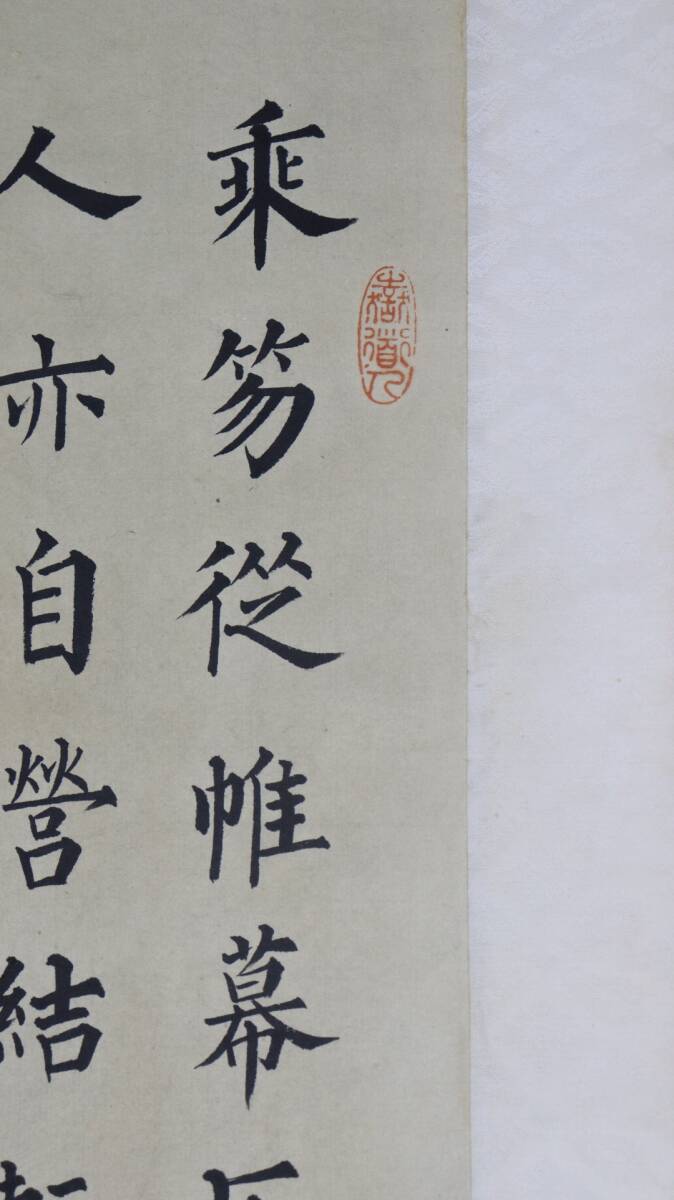 乘笏從帷幕
人亦自營結